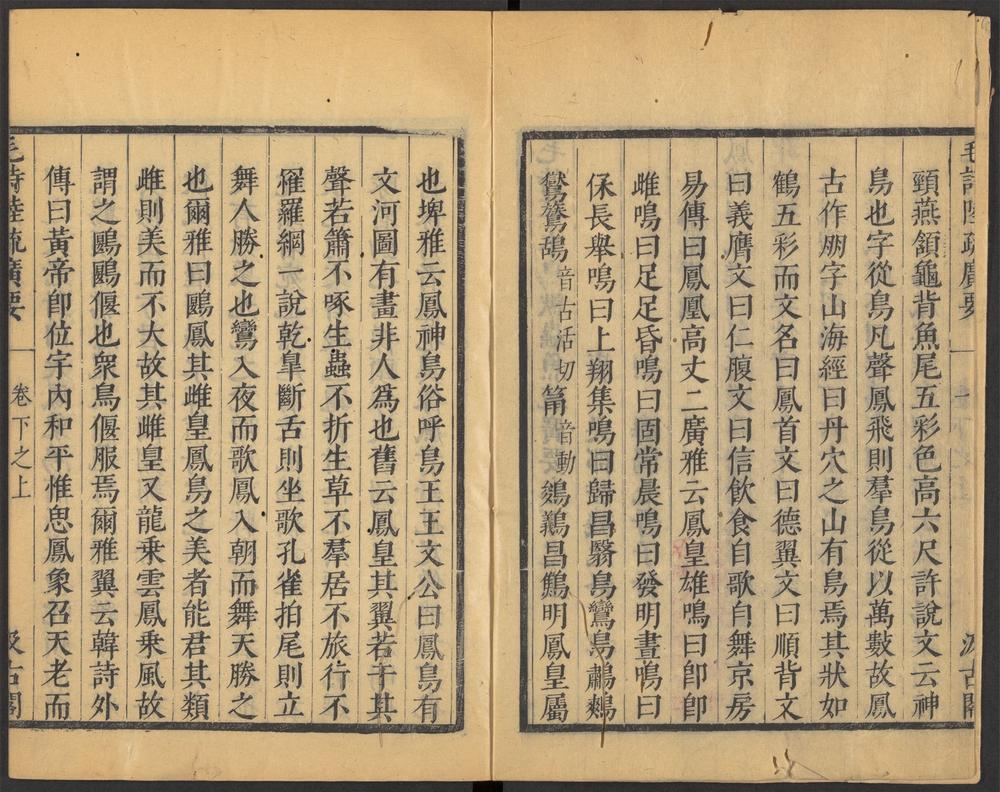 毛詩陸疏廣要
一
汲古閣
頸燕頷龜背魚尾五彩色高六尺許說文云神
鳥也字從鳥凡聲鳳飛則羣鳥從以萬數故鳳
古作朋字山海經曰丹穴之山有鳥焉其狀如
鶴五彩而文名曰鳳首文曰德翼文曰順背文
曰義膺文曰仁腹文曰信飲食自歌自舞京房
易傳曰鳳凰高丈二廣雅云鳳皇雄鳴曰卽卽
雌鳴曰足足昏鳴曰固常晨鳴曰發明晝鳴曰
保長舉鳴曰上翔集鳴曰歸昌翳鳥鸞鳥鷫鷞
鸑鷟鴰音古活切筩音動鷄鶨昌鷦明鳳皇屬
也埤雅云鳳神鳥俗呼鳥王王文公曰鳳鳥有
文河圖有畫非人爲也舊云鳳皇其翼若干其
聲若簫不啄生蟲不折生草不羣居不旅行不
罹羅網一說乾臯斷舌則坐歌孔雀拍尾則立
舞人勝之也鸞入夜而歌鳳入朝而舞天勝之
也爾雅曰鶠鳳其雌皇鳳鳥之美者能君其類
雌則美而不大故其雌皇又龍乘雲鳳乘風故
謂之鶠鶠偃也衆鳥偃服焉爾雅翼云韓詩外
傳曰黃帝卽位宇內和平惟思鳳象召天老而
毛詩陸疏廣要
卷下之上
汲古閣